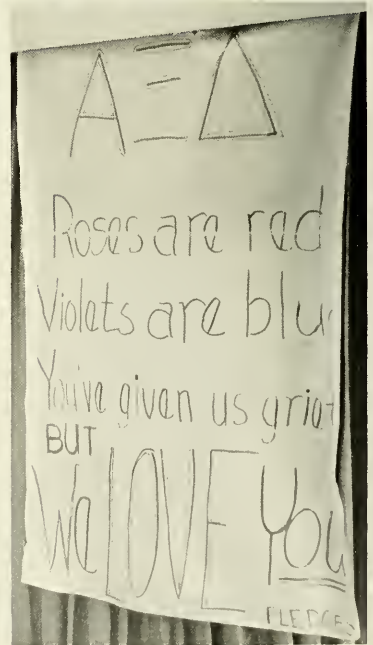 ΑΞΔ
Roses are red
Violets are blu
You've given us grief
BUT
We LOVE You
PLEDGES